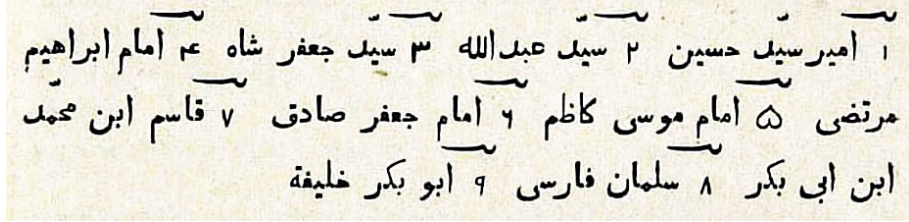 ۱ امیر سیّد حسین ۲ سیّد عبدالله ۳ سیّد جعفر شاه ۴ امام ابراهیم
مرتضی ۵ امام موسی کاظم ۶ امام جعفر صادق ۷ قاسم ابن محمّد
ابن ابی بکر ۸ سلمان فارسی ۹ ابو بکر خلیفة